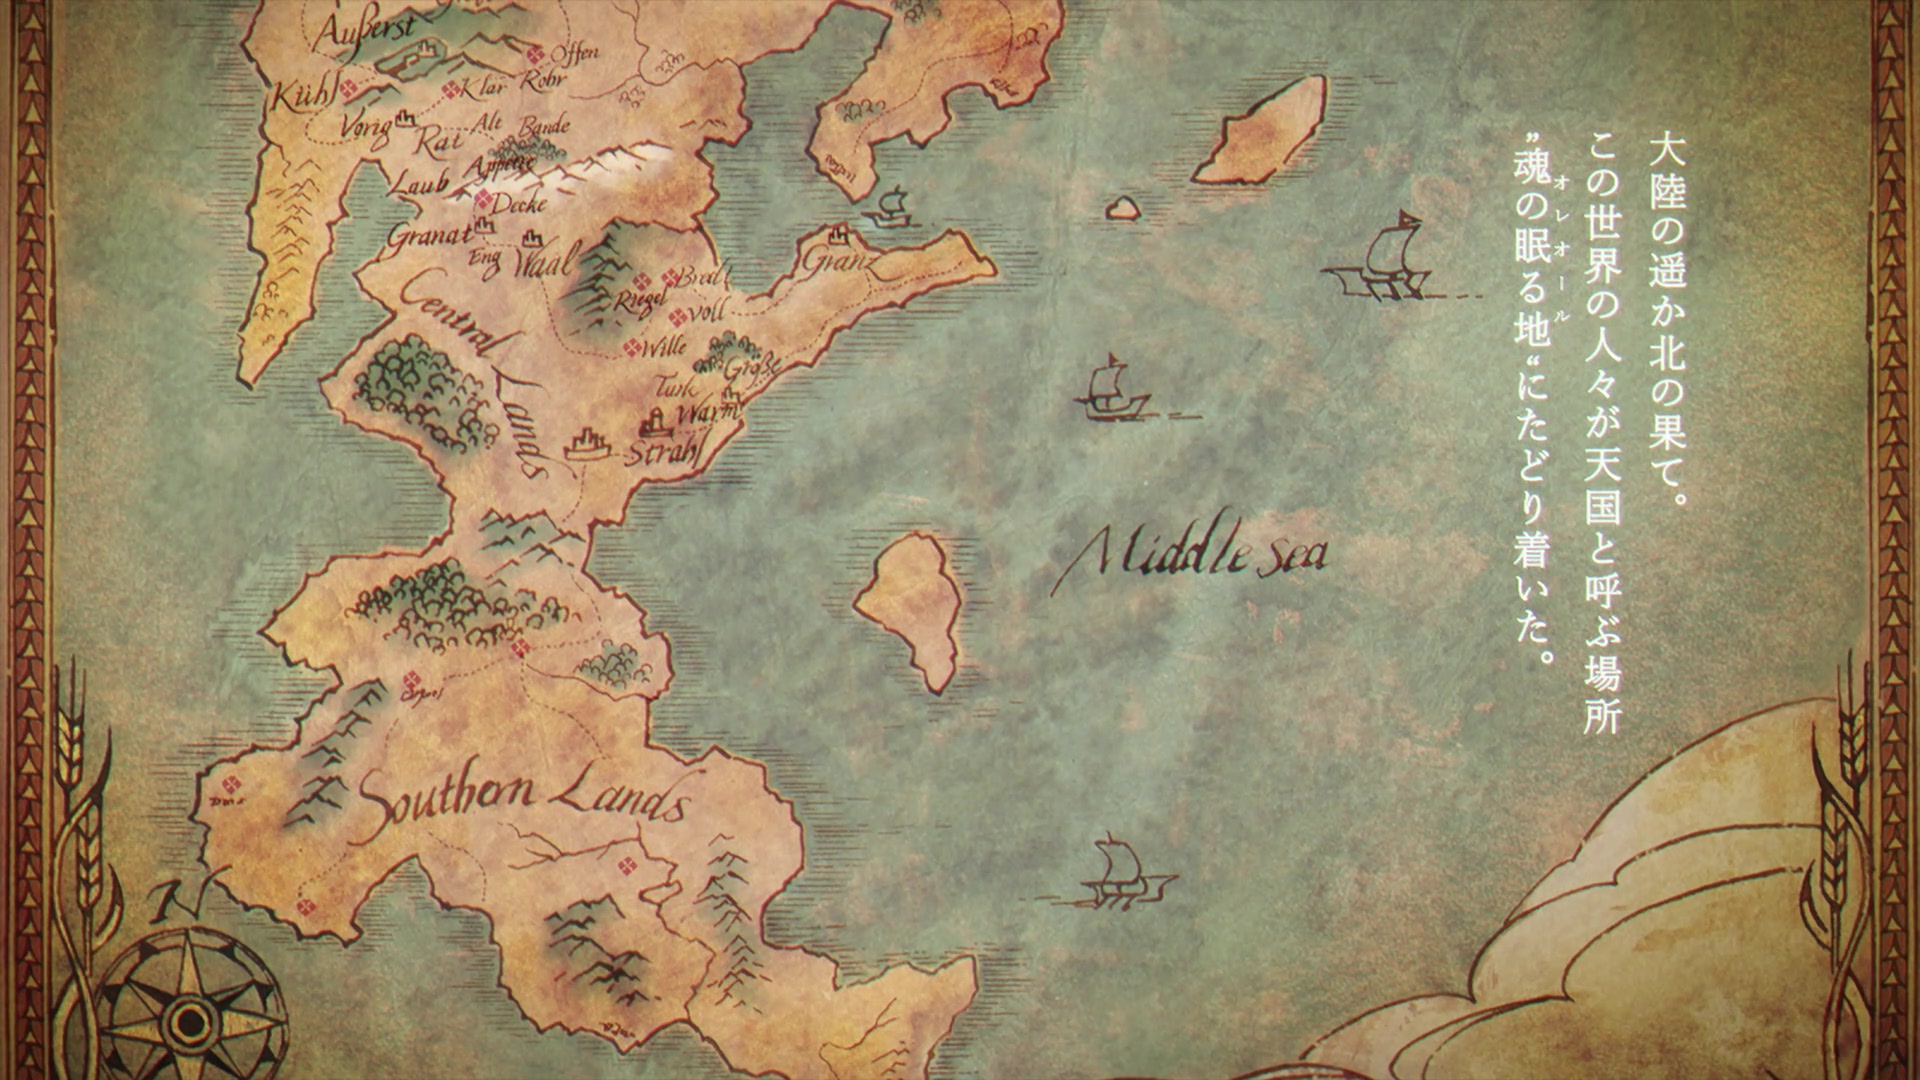 大陸の遥か北の果て。
この世界の人々が天国と呼ぶ場所
”魂の眠る地“にたどり着いた。
オレオール
Äußerst
Offen
Kühl
Klar
Rohr
Vorig
Rat
Alt
Bande
Appetit
Laub
Decke
Granat
Eng
Waal
Granz
Central Lands
Riegel
Bredt
Voll
Wille
Größe
Turk
Warm
Strahl
Middle Sea
Southern Lands
N